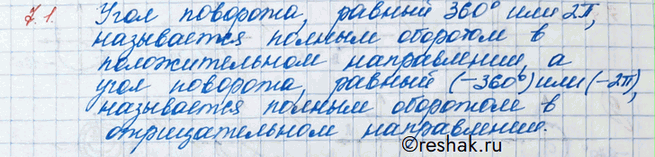 7.1. Угол поворота, равный 360° или 2π,
называется полным оборотом в
положительном направлении, а
угол поворота, равный (-360°) или (-2π),
называется полным оборотом в
отрицательном направлении.
©reshak.ru